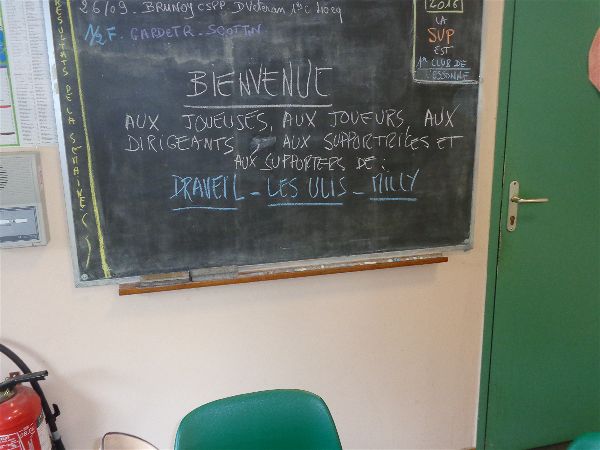 26/09. BRUNOY CSPP. D
1/2 F.
RESULTATS DE LA SEMAINE
2016
LA
SUP
EST
1er CLUB DE
L'ESSONNE
BIENVENUE
AUX JOUEUSES, AUX JOUEURS, AUX
DIRIGEANTS, AUX SUPPORTRICES ET
AUX SUPPORTERS DE :
DRAVEIL - LES ULIS - MILLY